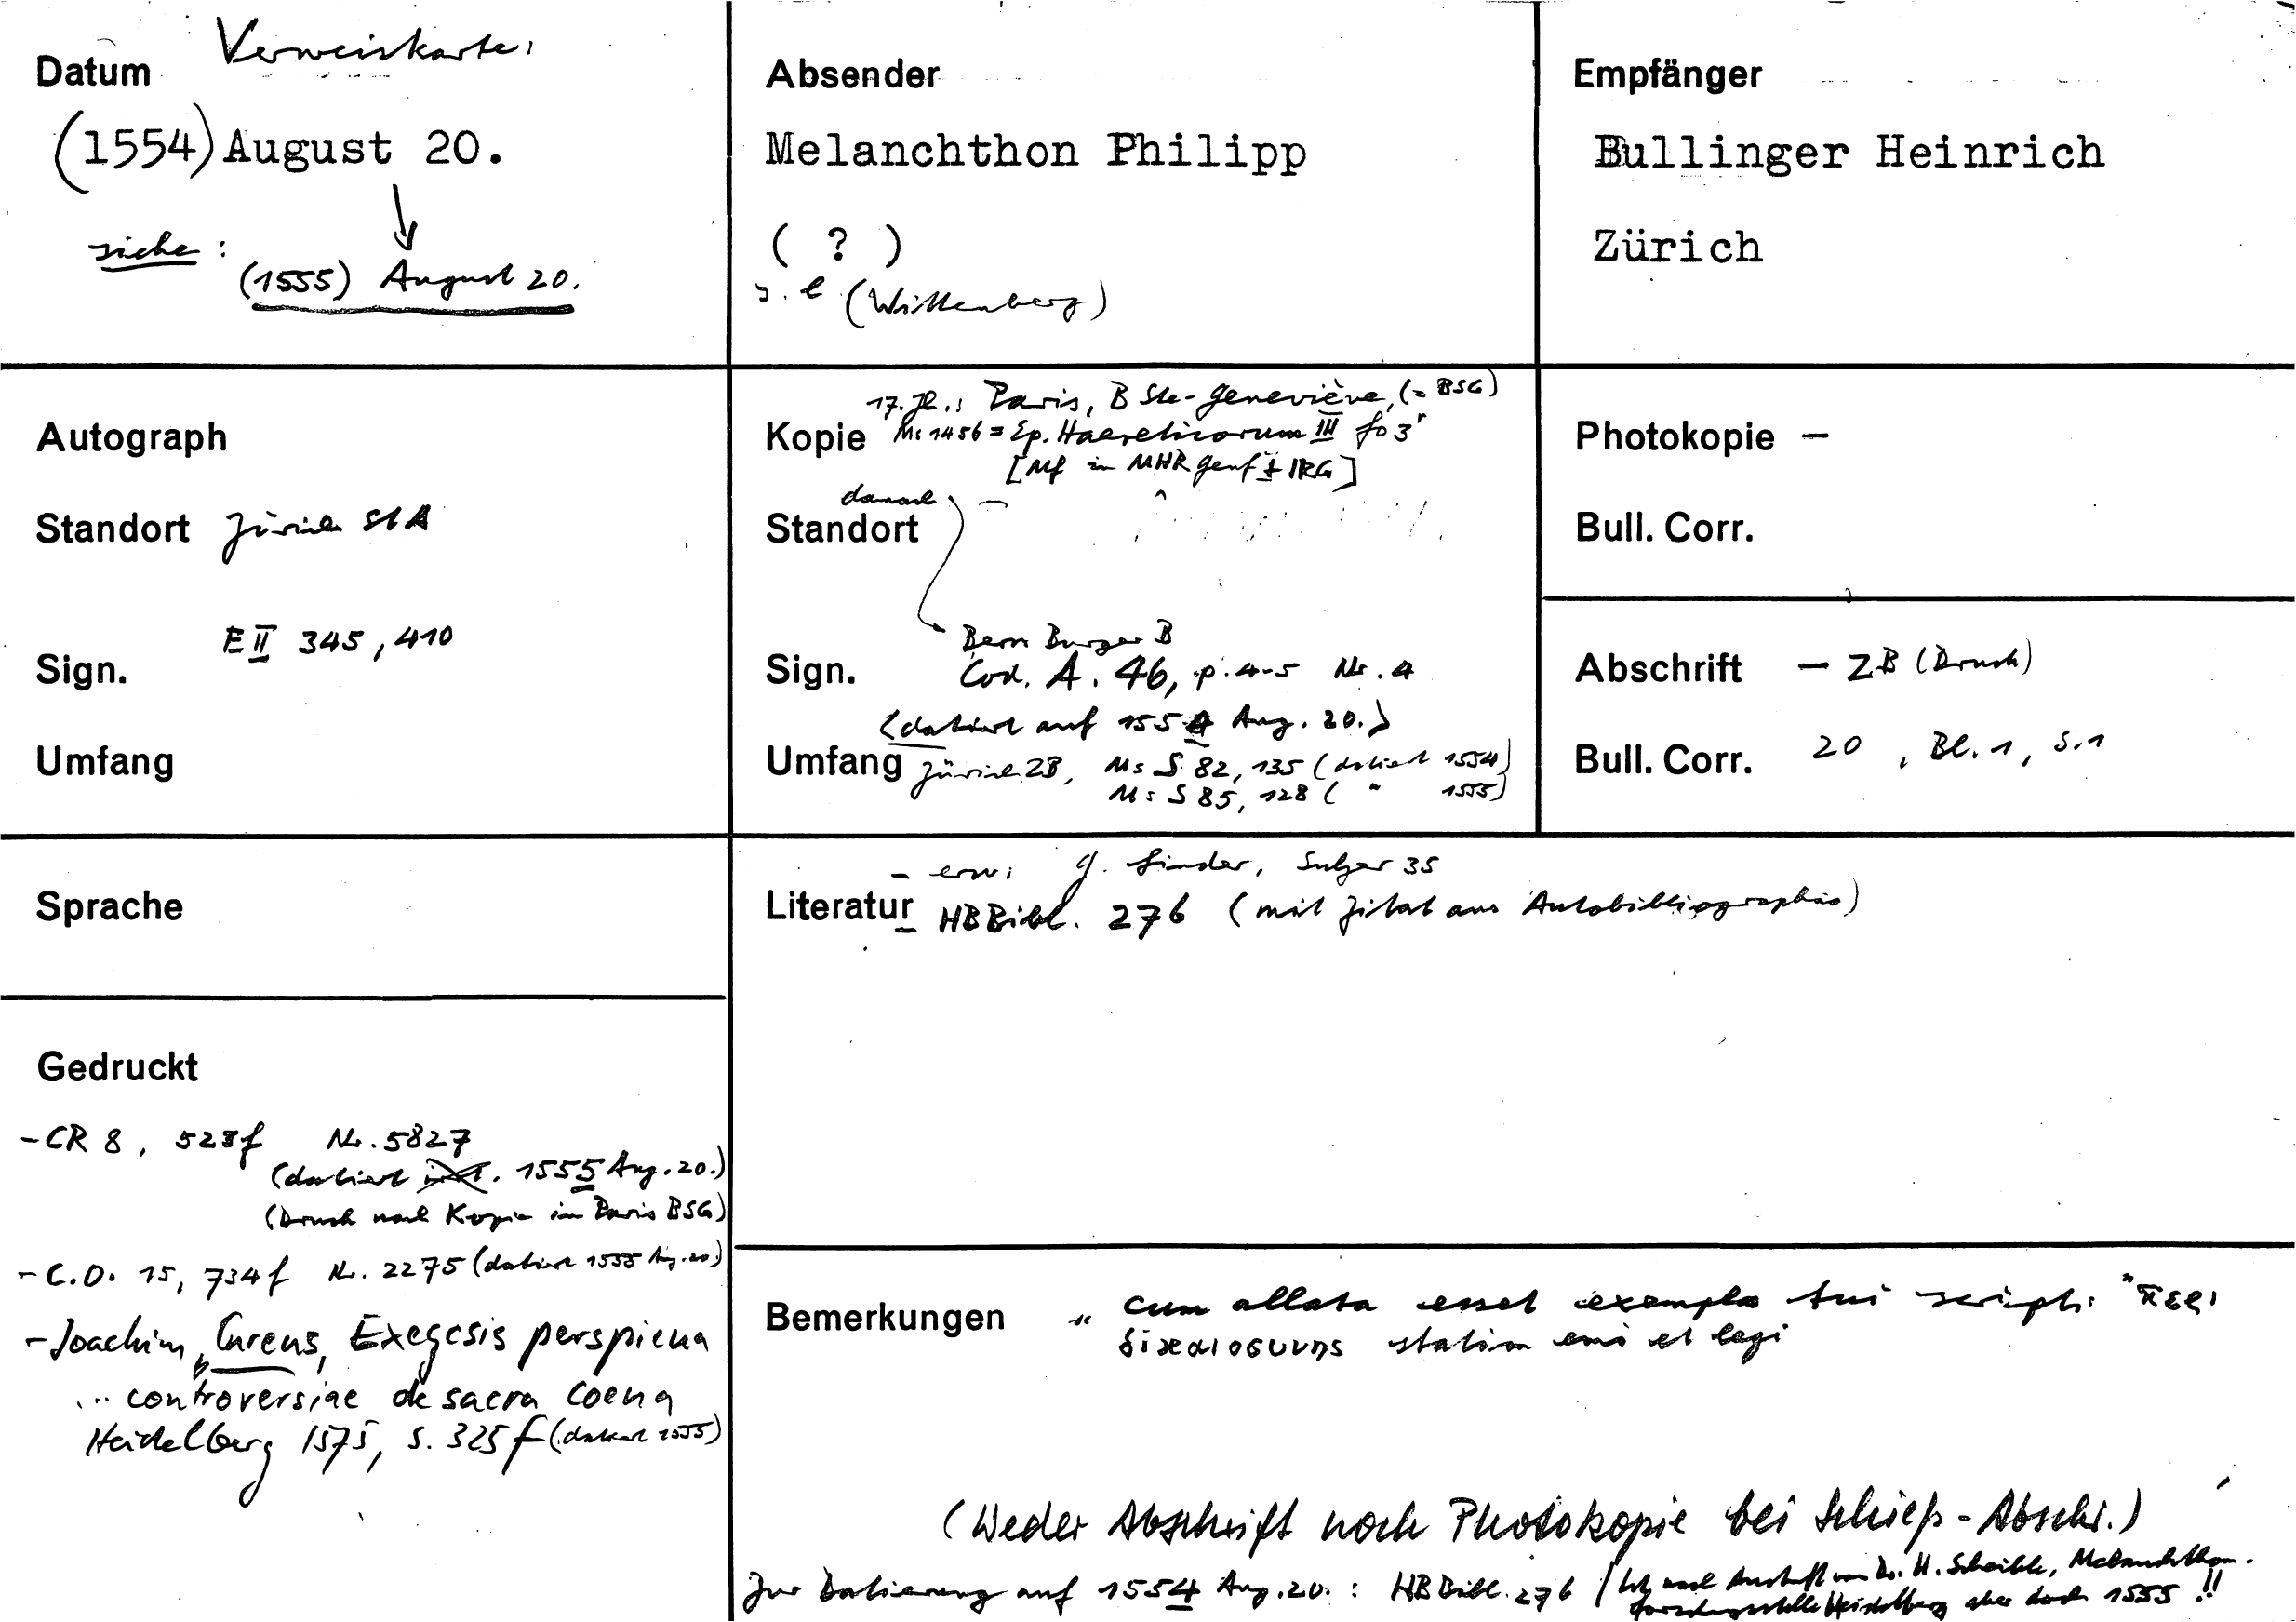 Verweiskarte:
Datum
(1554) August 20.
siehe:
(1555) August 20.
Absender
Melanchthon Philipp
( ? )
s. l. (Wittenberg)
Empfänger
Bullinger Heinrich
Zürich
Autograph
Standort Zürich StA
Sign. E II 345, 410
Umfang
17. Jh.: Paris, B Ste-Geneviève, (= BSG)
Kopie Ms 1456 = Ep. Haereticorum III fo 3r
[Mf in MHR Genf + IRG]
danach
Standort
Bern Burger B
Sign. Cod. A. 46, p. 4-5 Nr. 4
(datiert auf 1554 Aug. 20.)
Umfang Zürich ZB, Ms S 82, 135 (datiert 1554)
Ms S 85, 128 ( " 1555)
Photokopie –
Bull. Corr.
Abschrift – ZB (Druck)
Bull. Corr. 20, Bl. 1, S. 1
Sprache
– erw: G. Linder, Sulzer 35
Literatur – HBBibl. 276 (mit Zitat aus Autobibliographie)
Gedruckt
- CR 8, 523f Nr. 5827
(datiert 1555 Aug. 20.)
(Druck nach Kopie in Paris BSG)
- C.O. 15, 734f Nr. 2275 (datiert 1555 Aug. 20)
- Joachim Cureus, Exegesis perspicua
... controversiae de sacra coena
Heidelberg 1575, S. 325f (datiert 1555)
Bemerkungen " cum allata esset exempla tui scripti "περι
δικαιοσυνης statim emi et legi
(Weder Abschrift noch Photokopie bei Schieß-Abschr.)
Zur Datierung auf 1554 Aug. 20.: HBBibl. 276 / nach Auskunft von Dr. H. Scheible, Melanchthon-
forschungsstelle Heidelberg aber doch 1555 !!